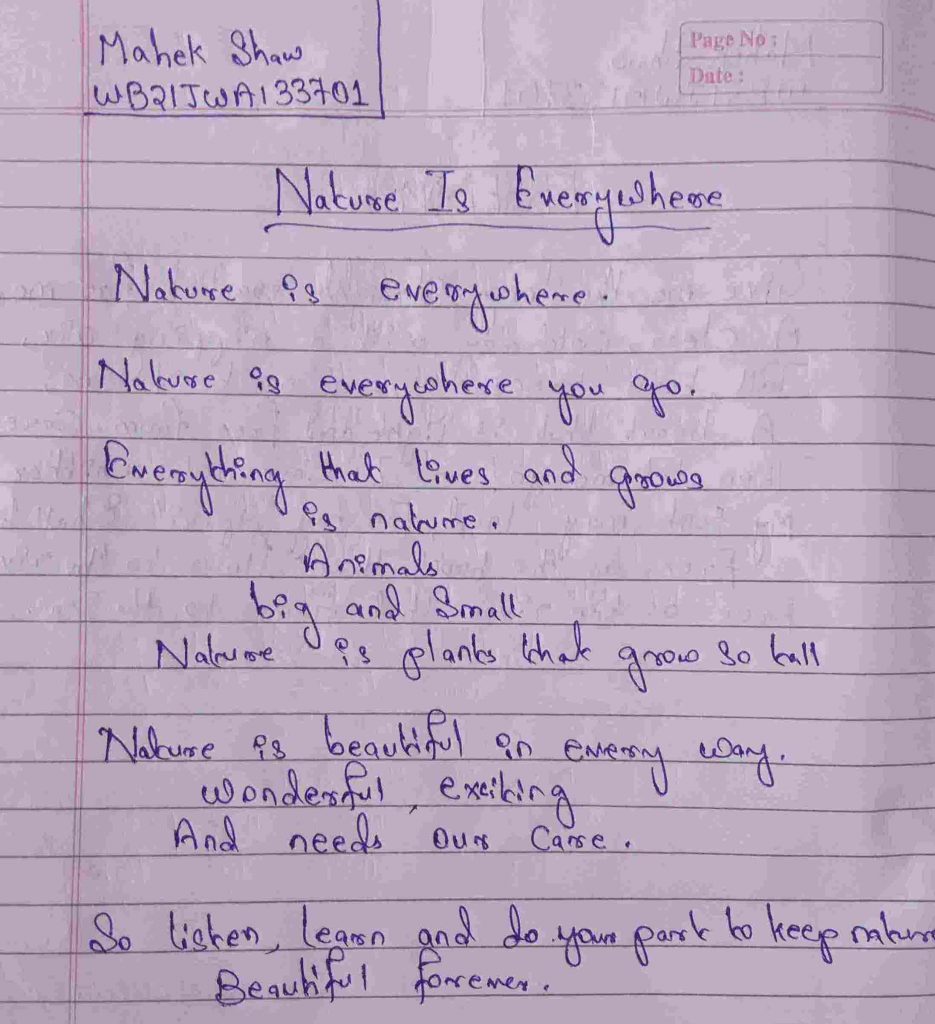 Mahek Shaw
WB21JWA133701
Page No :
Date :
Nature Is Everywhere
Nature is everywhere.
Nature is everywhere you go.
Everything that lives and grows
is nature.
Animals
big and Small
Nature is plants that grow so tall
Nature is beautiful in every way.
wonderful, exciting
And needs our care.
So listen, learn and do your part to keep nature
Beautiful forever.